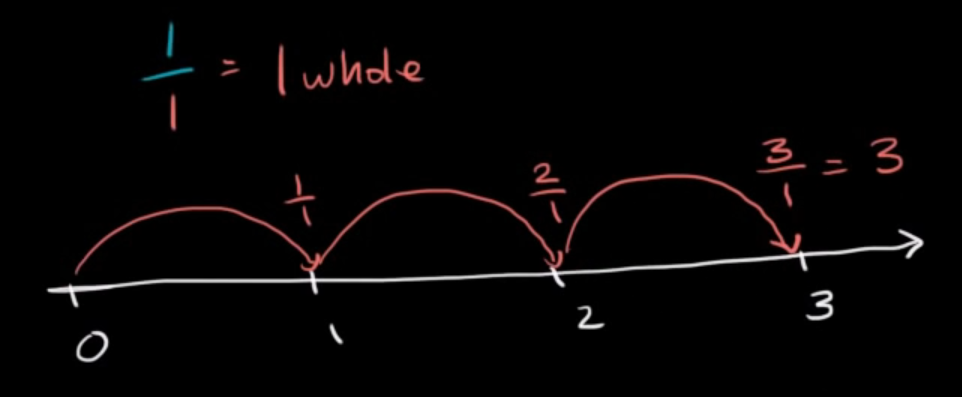 1/1 = 1 whole
1/1 2/1 3/1 = 3
0 1 2 3